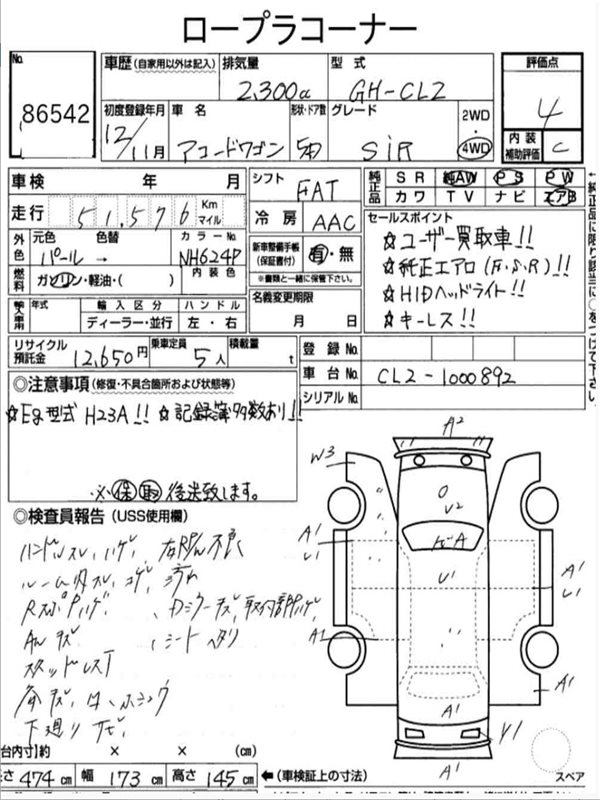 ロープラコーナー
No. 86542
車歴(自家用以外は記入) 排気量 2,300cc 型式 GH-CL2 評価点 4
初度登録年月 12/11月 車名 アコードワゴン 形状・ドア数 5 グレード SiR 2WD・4WD 内装補助評価 C
車検 年 月 シフト FAT 純正品 SR 純AW PS PW
カワ TV ナビ エアB
走行 51,576 Km マイル 冷房 AAC
セールスポイント
☆ユーザー買取車!!
☆純正エアロ(F.S.R)!!
☆HIDヘッドライト!!
☆キーレス!!
外色 元色 パール 色替 → カラーNo. NH624P 内装色
新車整備手帳(保証書付) 有・無
※書類と一緒に保管下さい。
燃料 ガソリン・軽油・( )
名義変更期限 月 日
輸入車用 年式 輸入区分 ディーラー・並行 ハンドル 左・右
リサイクル預託金 12,650円 乗車定員 5人 積載量 t
登録No.
車台No. CL2-1000892
シリアルNo.
◎注意事項(修復・不具合箇所および状態等)
☆Eg型式 H23A!! ☆記録簿多数あり!!
※保取後送致します。
◎検査員報告(USS使用欄)
ハンドルスレ、ハゲ
ルーム内スレ、コゲ、汚れ
AWキズ 、シートヘタリ
スタッドレス
下廻りサビ
A2
W3
U2
A1
U1
A
U1
A1
U1
A1
A1
A1
Y1
A1
スペア
台内寸 約 × × (cm)
さ 474cm 幅 173cm 高さ 145cm ←(車検証上の寸法)
←純正品に限り該当に○をつけて下さい。